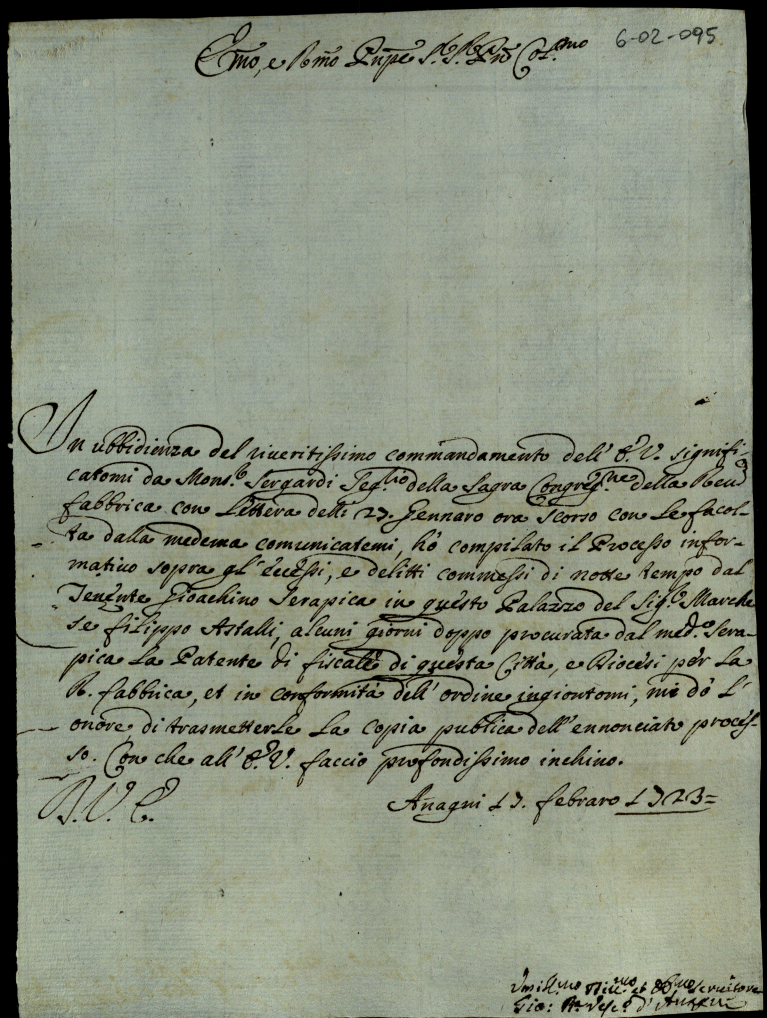 6-02-095
Em̃o, e Rm̃o Pñpe Sig.re Sig.re Prõn Col.mo
In ubbidienza del riveritissimo commandamento dell' E.V. signifi-
catomi da Mons.r Sergardi Seg.rio della Sagra Congreg.ne della Reu.da
fabbrica con Lettera delli 27. Gennaro ora scorso con le facol-
tà dalla medema comunicatemi, hò compilato il Processo infor-
mativo sopra gl' eccessi, e delitti commessi di notte tempo dal
Tenente Gioachino Serapica in questo Palazzo del Sig.re Marche
se filippo Astalli, alcuni giorni doppo procurata dal med.o Sera-
pica la Patente di fiscale di questa Città, e Diocesi per la
R. fabbrica, et in conformità dell' ordine ingiontomi, mi dò l'
onore di trasmetterle la copia publica dell' ennonciato proces-
so. Con che all' E.V. faccio profondissimo inchino.
D.V.E. Anagni 17. febraro 1723=
Vmill.mo Diu.mo et Obl.mo Servitore
Gio: Bta Vesc.o d'Anagni